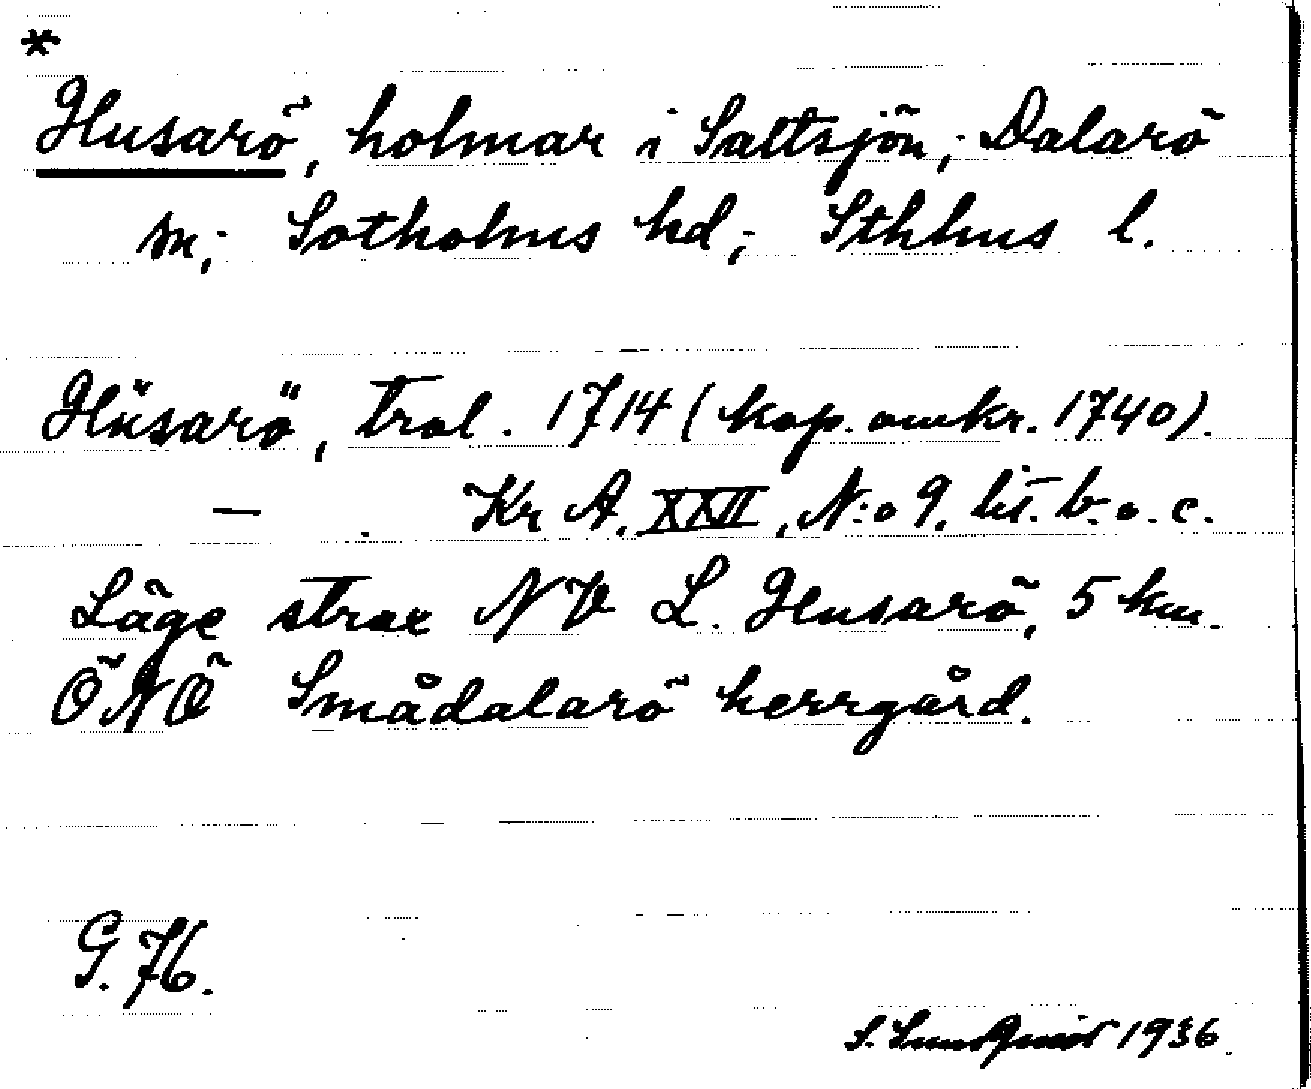 *
Husarö, holmar i Saltsjön; Dalarö
sn; Sotholms hd; Sthlms l.
Hüsarö, trol. 1714 (kop. omkr. 1740).
— . Kr A. XXII, N:o 9. lit. b. o. c.
Läge strax NV L. Husarö, 5 km.
ÖNÖ Smådalarö herrgård.
G. 76.
S. Lundquist 1936.